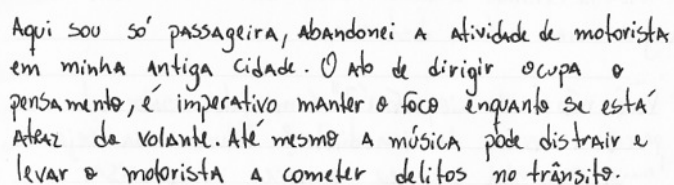 Aqui sou só passageira, abandonei a atividade de motorista
em minha antiga cidade. O ato de dirigir ocupa o
pensamento, é imperativo manter o foco enquanto se está
atraz do volante. Até mesmo a música pode distrair e
levar o motorista a cometer delitos no trânsito.